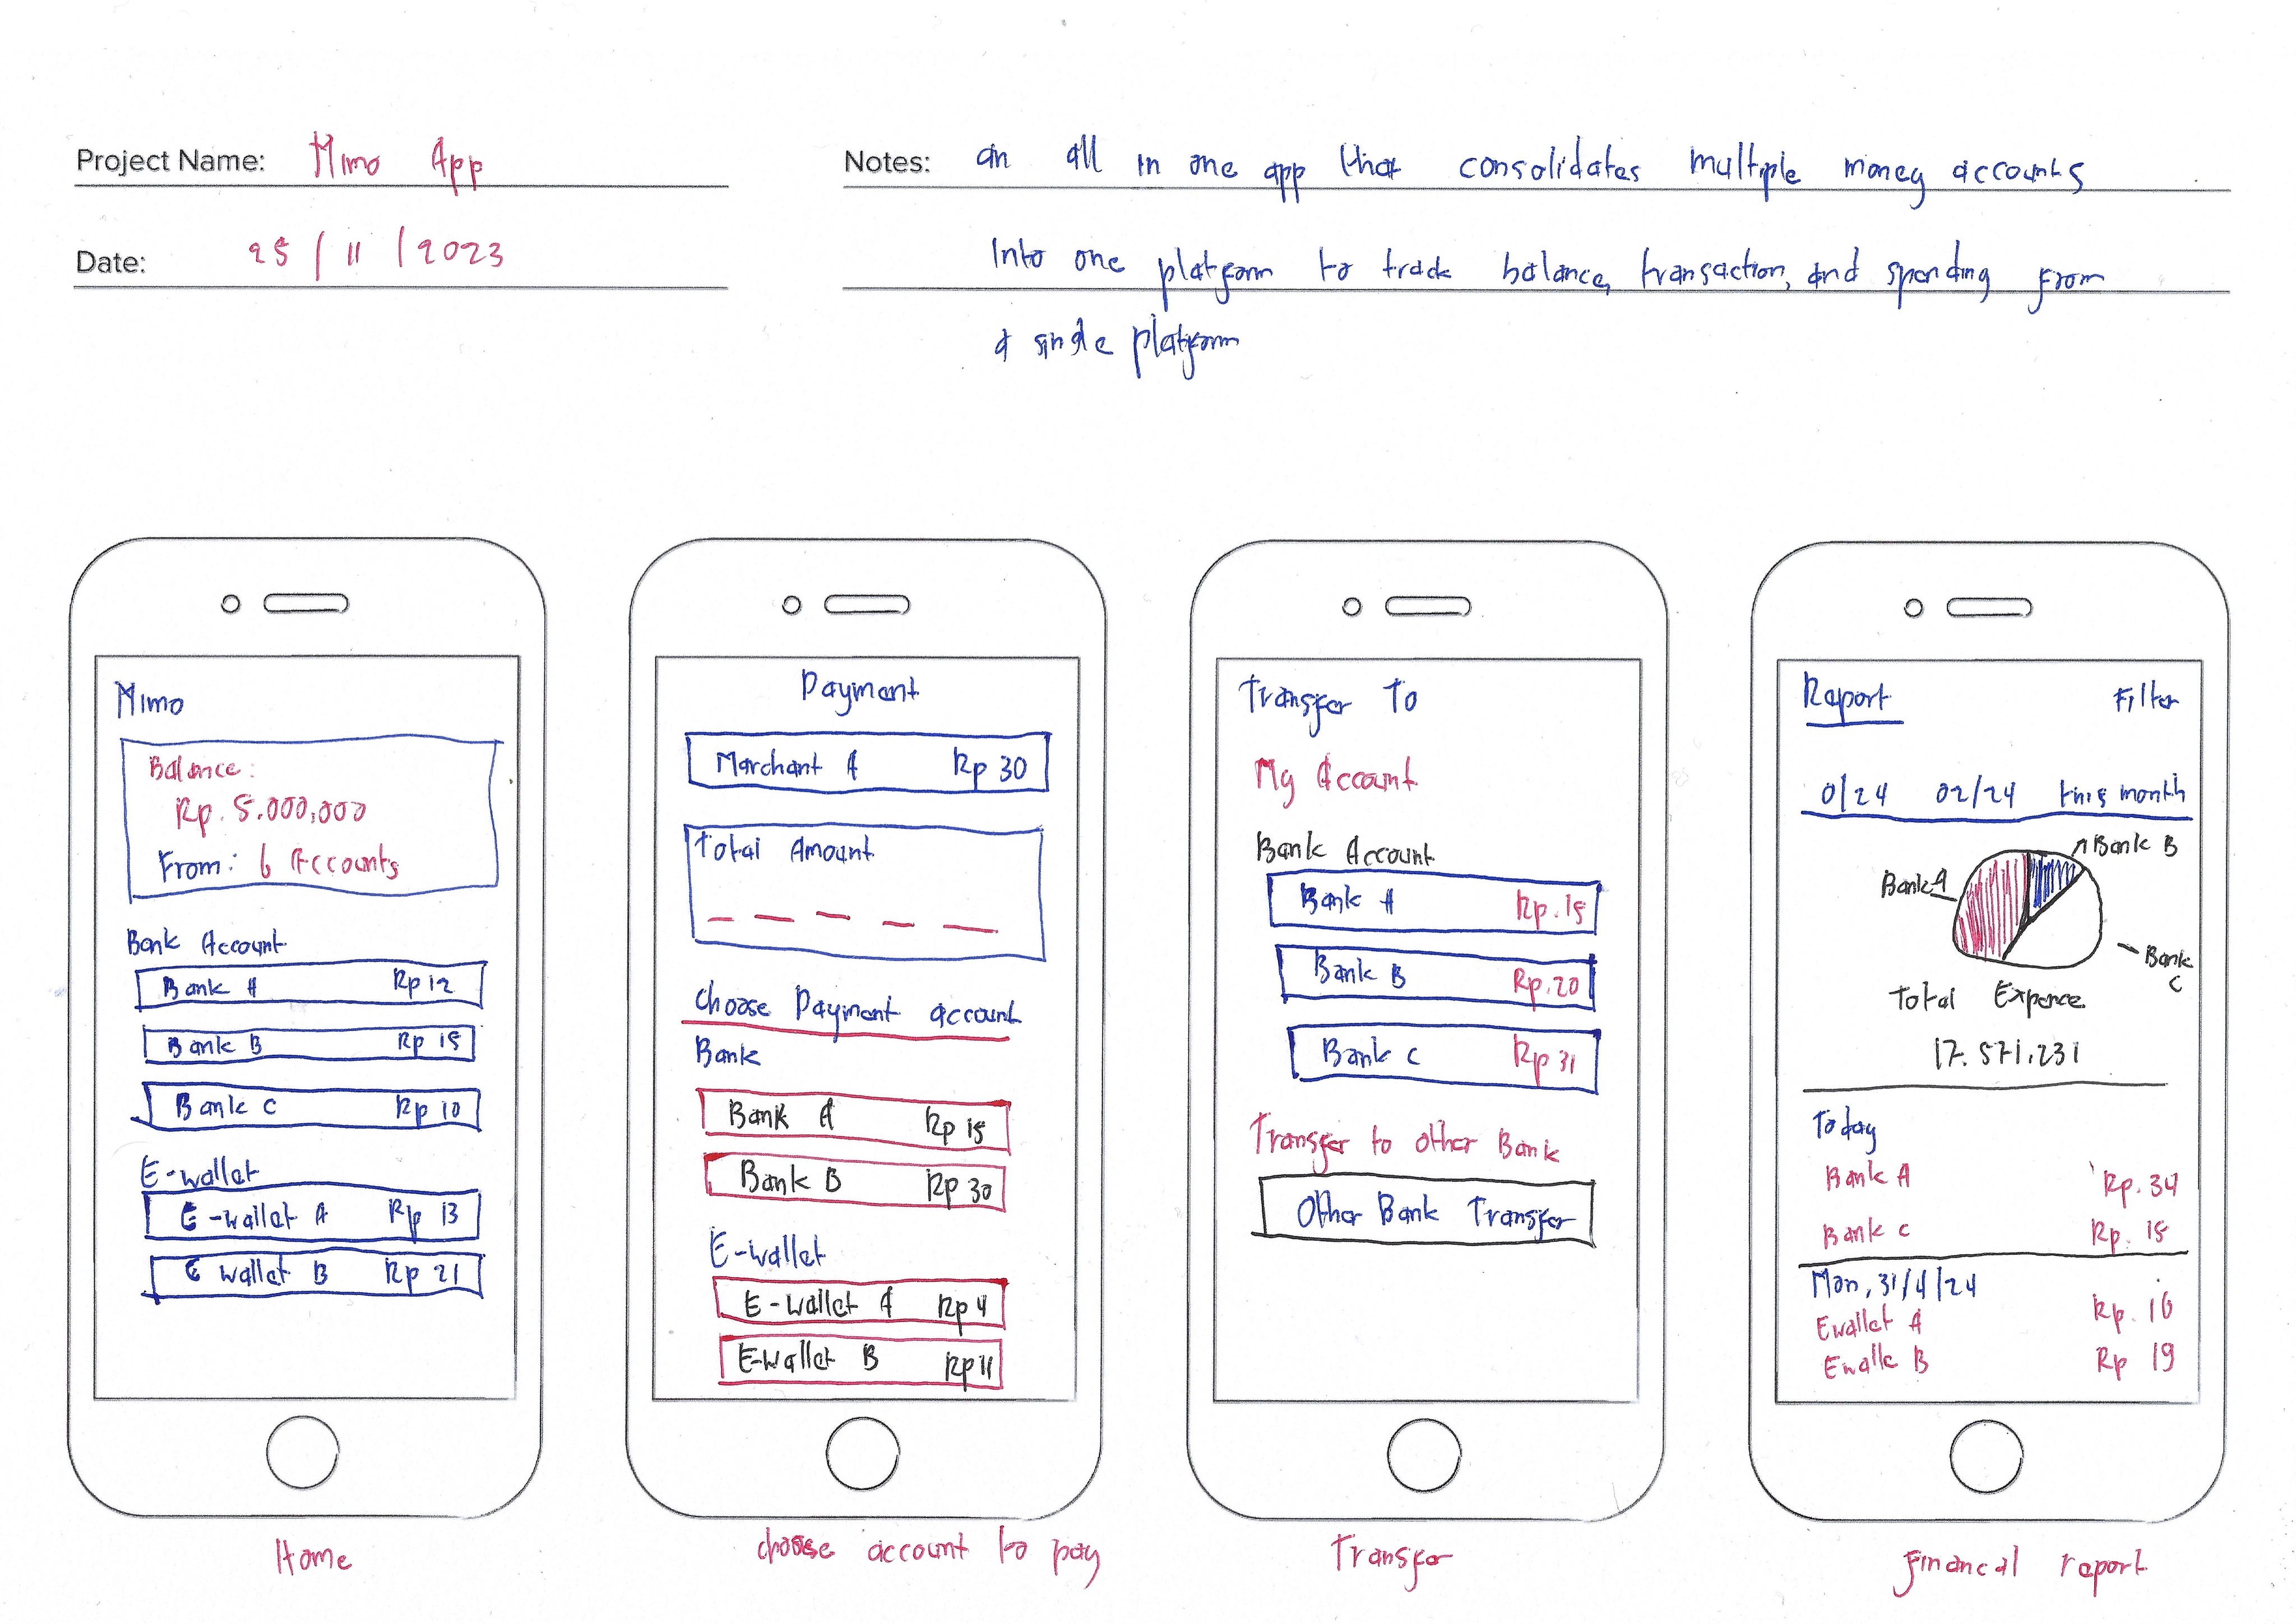 Project Name: Mimo App
Notes: an all in one app that consolidates multiple money accounts
Date: 25/11/2023
Into one platform to track balance, transaction, and spending from
a single platform
Mimo
Balance:
Rp. 5.000,000
From: 6 Accounts
Bank Account
Bank A Rp 12
Bank B Rp 15
Bank C Rp 10
E-wallet
E-wallet A Rp 13
E wallet B Rp 21
Home
Payment
Merchant A Rp 30
Total Amount
Choose Payment account
Bank
Bank A Rp 15
Bank B Rp 30
E-wallet
E-wallet A Rp 4
E-wallet B Rp 11
choose account to pay
Transfer To
My Account
Bank Account
Bank A Rp. 15
Bank B Rp. 20
Bank C Rp 31
Transfer to other Bank
Other Bank Transfer
Transfer
Report Filter
0/24 02/24 this month
Bank B
Bank A
Bank
C
Total Expence
17.571.231
Today
Bank A Rp. 34
Bank C Rp. 15
Mon, 31/4/24
Ewallet A Rp. 10
Ewalle B Rp 19
financal report